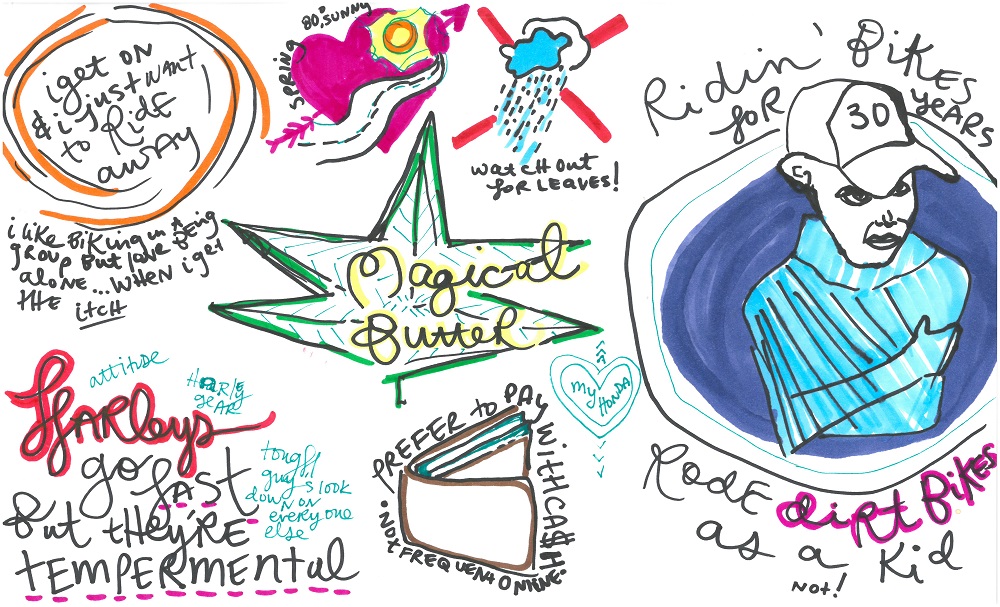 i get on
& i just want
to Ride
away
i like Biking in a
group But love Being
alone... when i get
the itch
SPRING
80°, SUNNY
watch out
for Leaves!
Magical
Butter
Ridin' Bikes
for 30 years
Rode dirt Bikes
as a Kid
NOT!
attitude
Harleys
go fast
But they're
tempermental
tough
guys look
down on
everyone
else
my
HONDA
PREFER to PAY
WITH CA$H
. Not FREQUENt ONLINE.